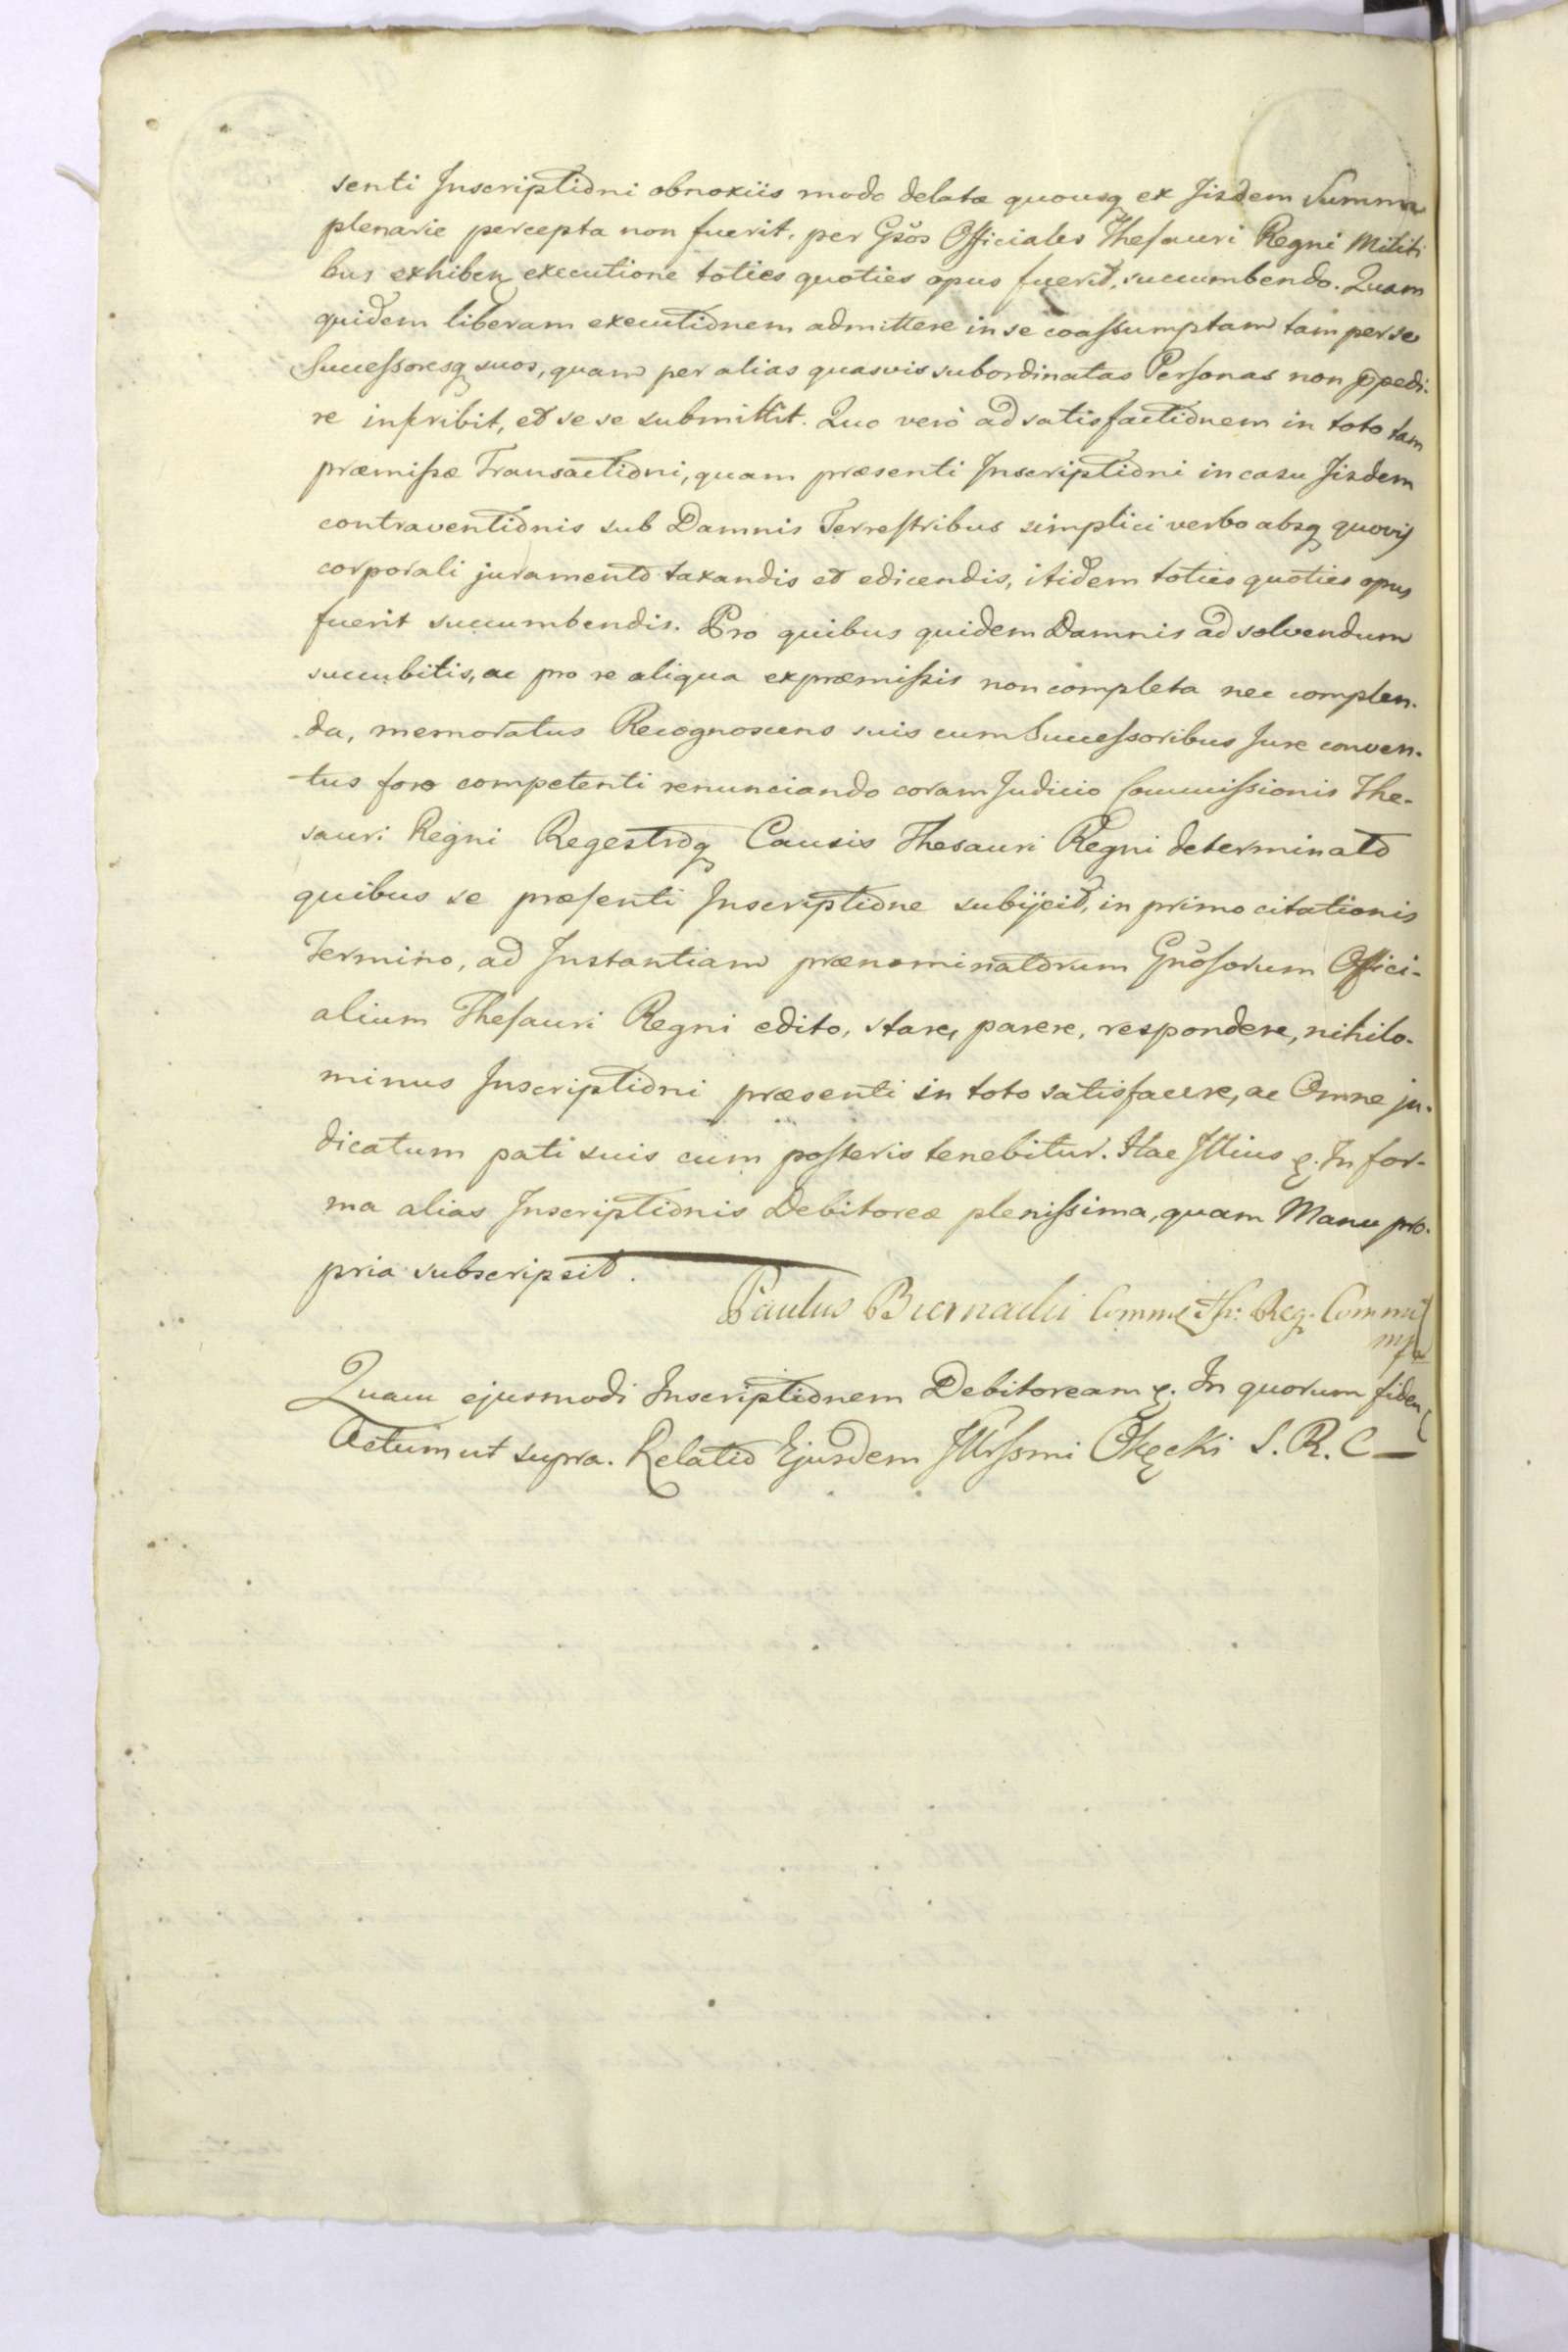 senti Inscriptioni obnoxiis modo delatæ quousq ex Iisdem Summa
plenarie percepta non fuerit, per Gsõs Officiales Thesauri Regni Militi
bus exhiben executione toties quoties opus fuerit, succumbendo. Quam
quidem liberam executionem admittere in se coassumptam tam per se
Successoresq suos, quam per alias quasvis subordinatas Personas non pedi-
re inscribit, et se se submittit. Quo vero ad satisfactionem in toto tam
præmissæ Transactioni, quam præsenti Inscriptioni in casu Iisdem
contraventionis sub Damnis Terrestribus simplici verbo absq quovis
corporali juramento taxandis et edicendis, itidem toties quoties opus
fuerit succumbendis. Pro quibus quidem Damnis ad solvendum
succubitis, ac pro re aliqua ex præmissis non completa nec complen-
da, memoratus Recognoscens suis cum Successoribus Jure conven-
tus foro competenti renunciando coram Judicio Commissionis The-
sauri Regni Regestroq Causis Thesauri Regni determinato
quibus se præsenti Inscriptione subijcit, in primo citationis
Termino, ad Instantiam prænominatorum Gnõsorum Offici-
alium Thesauri Regni edito, stare, parere, respondere, nihilo-
minus Inscriptioni præsenti in toto satisfacere, ac Omne ju-
dicatum pati suis cum posteris tenebitur. Hac Illius &. In for-
ma alias Inscriptionis Debitoreæ plenissima, quam Manu pro-
pria subscripsit.
Paulus Biernadii Reg.
mp
Quam ejusmodi Inscriptionem Debitoream &. In quorum fidem
Actum ut supra. Relatio Ejusdem Illrssmi Okęcki S. R. C